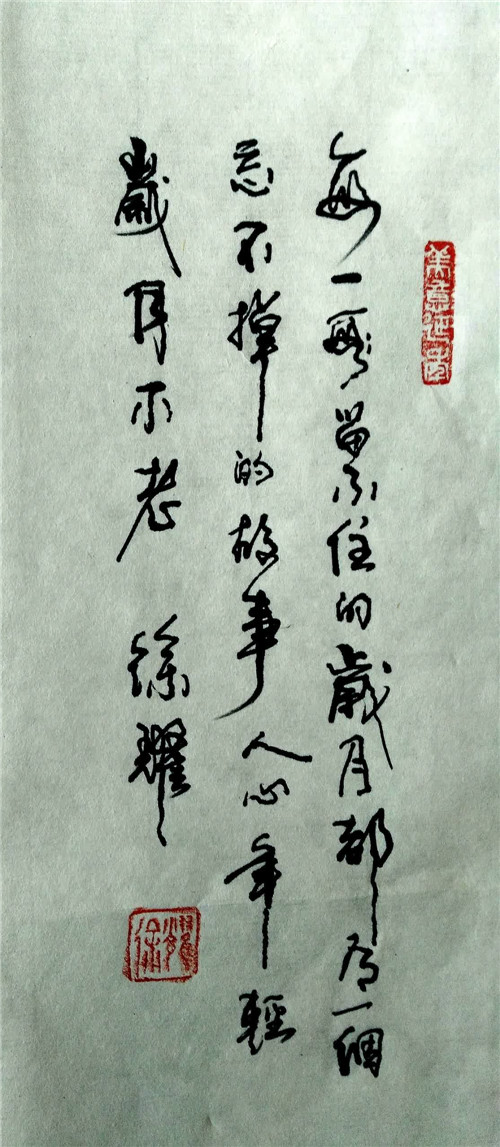 美意延年
每一段留不住的歲月都有一個
忘不掉的故事人心年輕
歲月不老 徐耀
徐耀